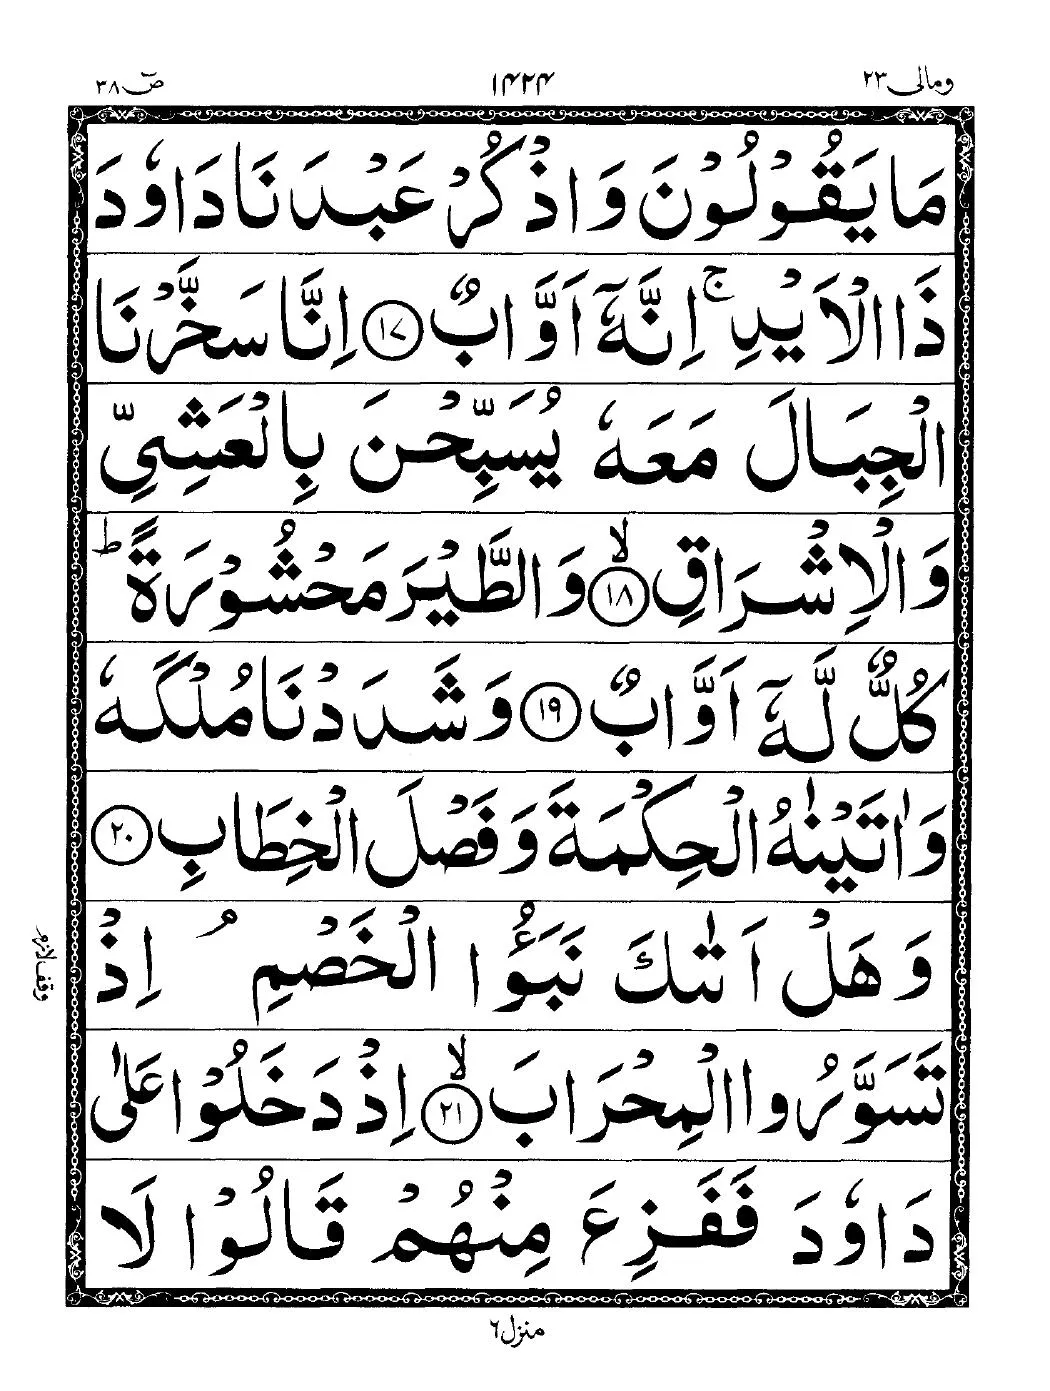 ومالی ۲۳ ۱۴۲۴ صٓ ۳۸
مَا يَقُوْلُوْنَ وَاذْكُرْ عَبْدَنَا دَاوٗدَ
ذَا الْاَيْدِ ۚ اِنَّهٗۤ اَوَّابٌ ۝۱۷ اِنَّا سَخَّرْنَا
الْجِبَالَ مَعَهٗ يُسَبِّحْنَ بِالْعَشِيِّ
وَالْاِشْرَاقِ ۝۱۸ۙ وَالطَّيْرَ مَحْشُوْرَةً ؕ
كُلٌّ لَّهٗۤ اَوَّابٌ ۝۱۹ وَشَدَدْنَا مُلْكَهٗ
وَاٰتَيْنٰهُ الْحِكْمَةَ وَفَصْلَ الْخِطَابِ ۝۲۰
وَهَلْ اَتٰىكَ نَبَؤُا الْخَصْمِ ۘ اِذْ
وقف لازم
تَسَوَّرُوا الْمِحْرَابَ ۝۲۱ۙ اِذْ دَخَلُوْا عَلٰى
دَاوٗدَ فَفَزِعَ مِنْهُمْ قَالُوْا لَا
منزل ۶